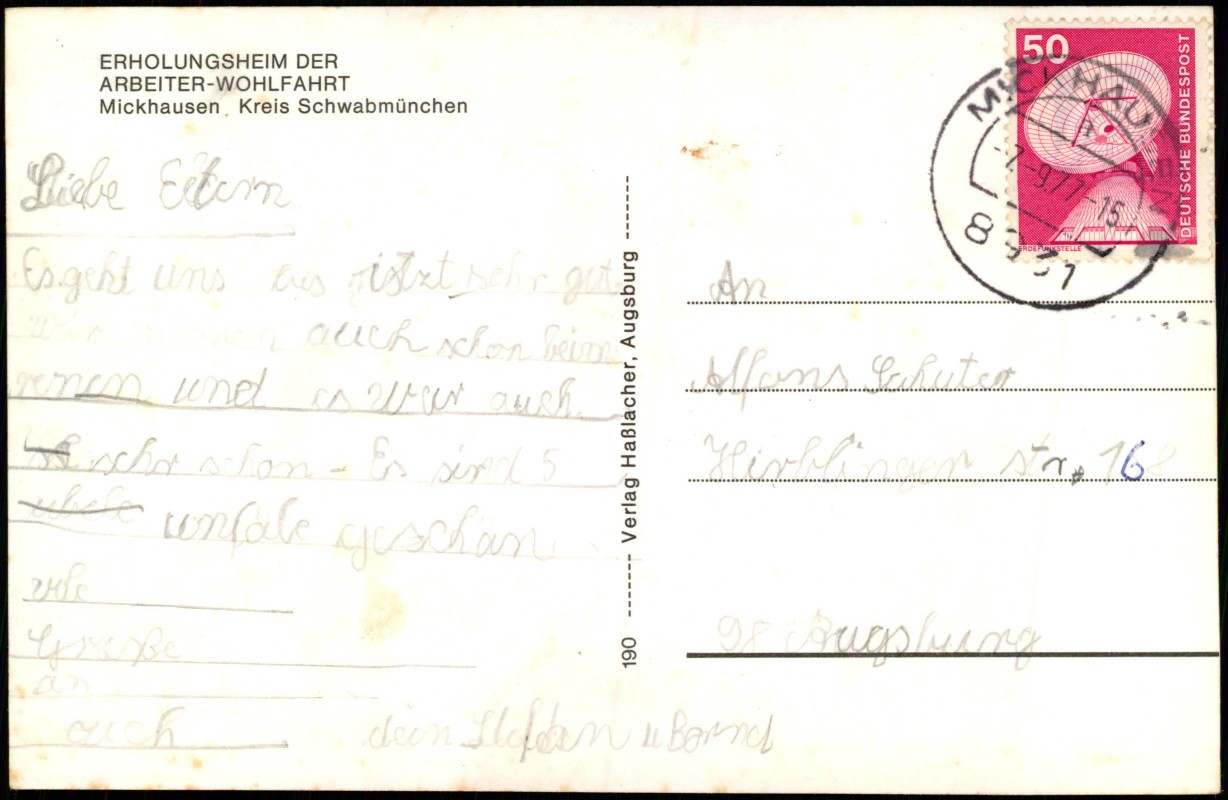 ERHOLUNGSHEIM DER
ARBEITER-WOHLFAHRT
Mickhausen Kreis Schwabmünchen
Liebe Eltern
Es geht uns sehr gut
auch schon beim
renen und es war auch
sehr schon - Es sind 5
unfäle geschän
vile
Grüße
an
auch dein Stefan u Bernd
190 Verlag Haßlacher, Augsburg
50
DEUTSCHE BUNDESPOST
ERDEFUNKSTELLE
MICKHAUSEN
-7.-9.77-15
8931
An
Alfons
Hirblinger str. 168
Augsburg